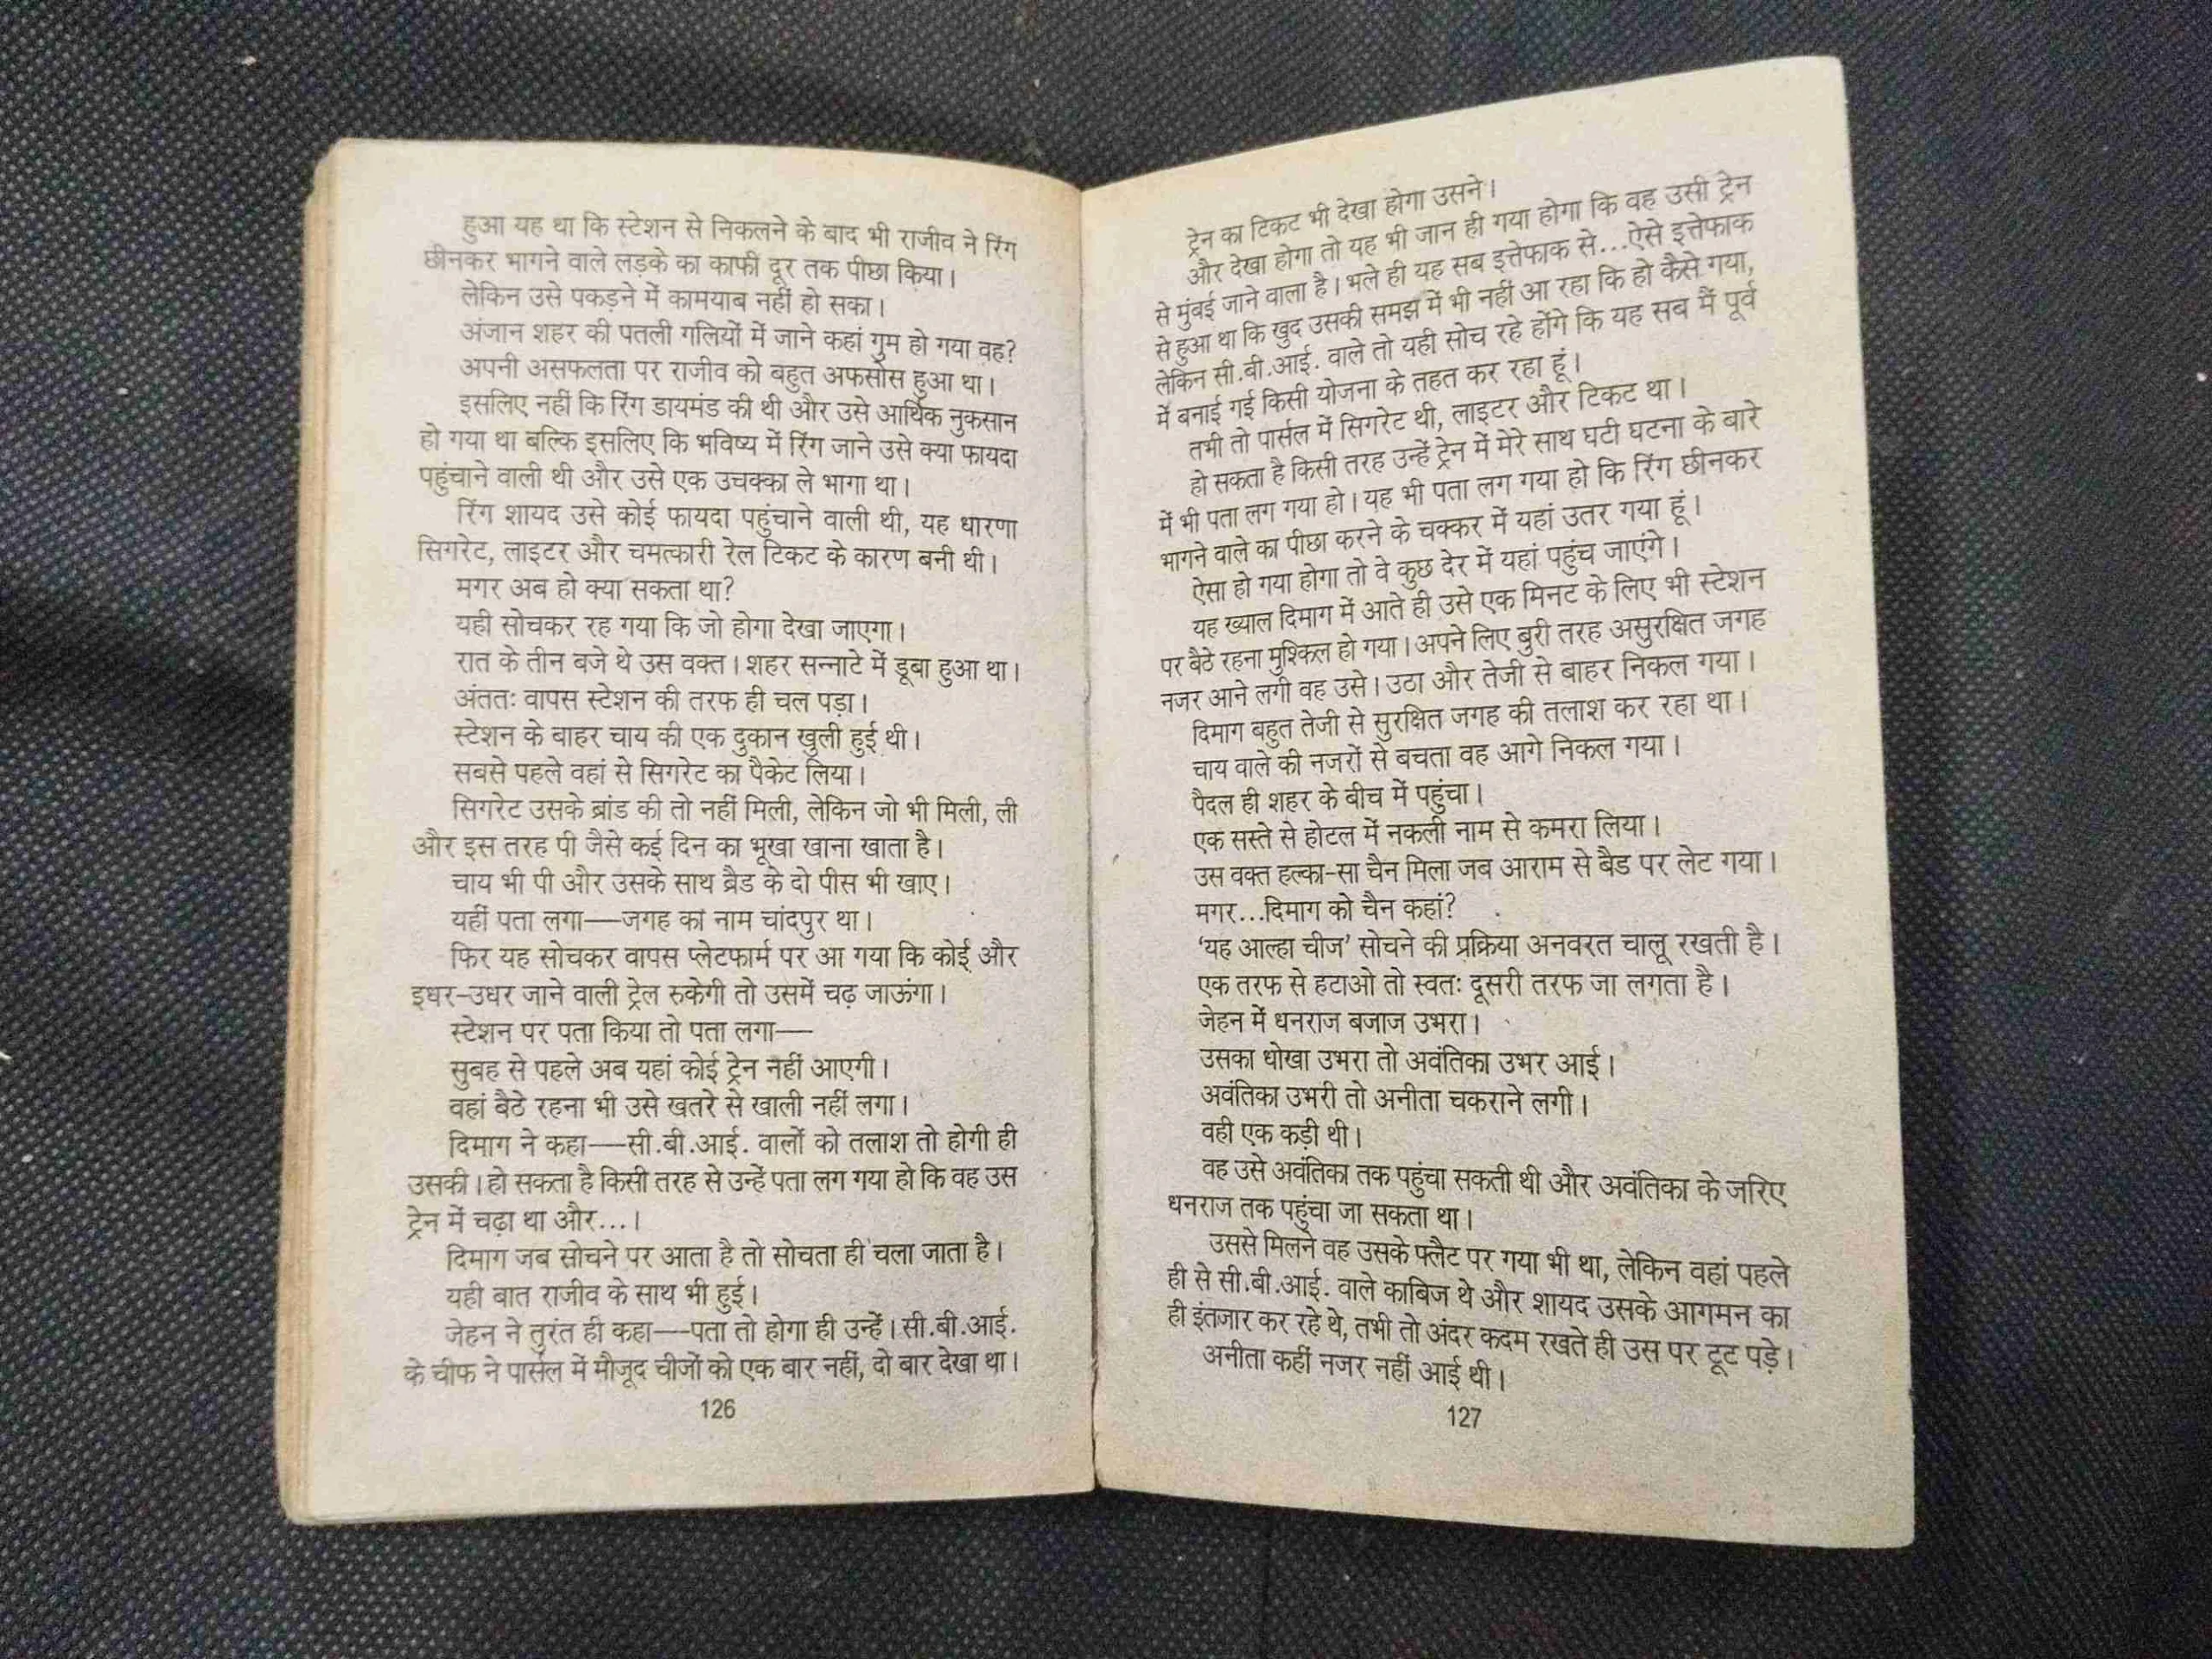 हुआ यह था कि स्टेशन से निकलने के बाद भी राजीव ने रिंग
छीनकर भागने वाले लड़के का काफी दूर तक पीछा किया।
लेकिन उसे पकड़ने में कामयाब नहीं हो सका।
अंजान शहर की पतली गलियों में जाने कहां गुम हो गया वह?
अपनी असफलता पर राजीव को बहुत अफसोस हुआ था।
इसलिए नहीं कि रिंग डायमंड की थी और उसे आर्थिक नुकसान
हो गया था बल्कि इसलिए कि भविष्य में रिंग जाने उसे क्या फायदा
पहुंचाने वाली थी और उसे एक उचक्का ले भागा था।
रिंग शायद उसे कोई फायदा पहुंचाने वाली थी, यह धारणा
सिगरेट, लाइटर और चमत्कारी रेल टिकट के कारण बनी थी।
मगर अब हो क्या सकता था?
यही सोचकर रह गया कि जो होगा देखा जाएगा।
रात के तीन बजे थे उस वक्त। शहर सन्नाटे में डूबा हुआ था।
अंततः वापस स्टेशन की तरफ ही चल पड़ा।
स्टेशन के बाहर चाय की एक दुकान खुली हुई थी।
सबसे पहले वहां से सिगरेट का पैकेट लिया।
सिगरेट उसके ब्रांड की तो नहीं मिली, लेकिन जो भी मिली, ली
और इस तरह पी जैसे कई दिन का भूखा खाना खाता है।
चाय भी पी और उसके साथ ब्रैड के दो पीस भी खाए।
यहीं पता लगा—जगह का नाम चांदपुर था।
फिर यह सोचकर वापस प्लेटफार्म पर आ गया कि कोई और
इधर-उधर जाने वाली ट्रेल रुकेगी तो उसमें चढ़ जाऊंगा।
स्टेशन पर पता किया तो पता लगा—
सुबह से पहले अब यहां कोई ट्रेन नहीं आएगी।
वहां बैठे रहना भी उसे खतरे से खाली नहीं लगा।
दिमाग ने कहा—सी.बी.आई. वालों को तलाश तो होगी ही
उसकी। हो सकता है किसी तरह से उन्हें पता लग गया हो कि वह उस
ट्रेन में चढ़ा था और...।
दिमाग जब सोचने पर आता है तो सोचता ही चला जाता है।
यही बात राजीव के साथ भी हुई।
जेहन ने तुरंत ही कहा—पता तो होगा ही उन्हें। सी.बी.आई.
के चीफ ने पार्सल में मौजूद चीजों को एक बार नहीं, दो बार देखा था।
126
ट्रेन का टिकट भी देखा होगा उसने।
और देखा होगा तो यह भी जान ही गया होगा कि वह उसी ट्रेन
से मुंबई जाने वाला है। भले ही यह सब इत्तेफाक से...ऐसे इत्तेफाक
से हुआ था कि खुद उसकी समझ में भी नहीं आ रहा कि हो कैसे गया,
लेकिन सी.बी.आई. वाले तो यही सोच रहे होंगे कि यह सब मैं पूर्व
में बनाई गई किसी योजना के तहत कर रहा हूं।
तभी तो पार्सल में सिगरेट थी, लाइटर और टिकट था।
हो सकता है किसी तरह उन्हें ट्रेन में मेरे साथ घटी घटना के बारे
में भी पता लग गया हो। यह भी पता लग गया हो कि रिंग छीनकर
भागने वाले का पीछा करने के चक्कर में यहां उतर गया हूं।
ऐसा हो गया होगा तो वे कुछ देर में यहां पहुंच जाएंगे।
यह ख्याल दिमाग में आते ही उसे एक मिनट के लिए भी स्टेशन
पर बैठे रहना मुश्किल हो गया। अपने लिए बुरी तरह असुरक्षित जगह
नजर आने लगी वह उसे। उठा और तेजी से बाहर निकल गया।
दिमाग बहुत तेजी से सुरक्षित जगह की तलाश कर रहा था।
चाय वाले की नजरों से बचता वह आगे निकल गया।
पैदल ही शहर के बीच में पहुंचा।
एक सस्ते से होटल में नकली नाम से कमरा लिया।
उस वक्त हल्का-सा चैन मिला जब आराम से बैड पर लेट गया।
मगर...दिमाग को चैन कहां?
'यह आल्हा चीज' सोचने की प्रक्रिया अनवरत चालू रखती है।
एक तरफ से हटाओ तो स्वतः दूसरी तरफ जा लगता है।
जेहन में धनराज बजाज उभरा।
उसका धोखा उभरा तो अवंतिका उभर आई।
अवंतिका उभरी तो अनीता चकराने लगी।
वही एक कड़ी थी।
वह उसे अवंतिका तक पहुंचा सकती थी और अवंतिका के जरिए
धनराज तक पहुंचा जा सकता था।
उससे मिलने वह उसके फ्लैट पर गया भी था, लेकिन वहां पहले
ही से सी.बी.आई. वाले काबिज थे और शायद उसके आगमन का
ही इंतजार कर रहे थे, तभी तो अंदर कदम रखते ही उस पर टूट पड़े।
अनीता कहीं नजर नहीं आई थी।
127